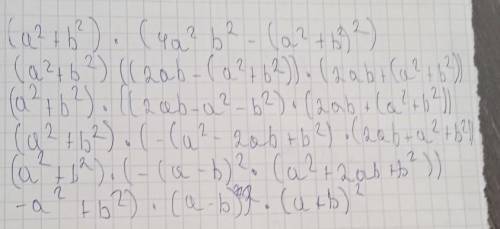 (a² + b²) · (4a² b² - (a² + b²)²)
(a² + b²) ((2ab - (a² + b²)) · (2ab + (a² + b²))
(a² + b²) · ((2ab - a² - b²) · (2ab + (a² + b²))
(a² + b²) · (-(a² - 2ab + b²) · (2ab + a² + b²)
(a² + b²) · (-(a - b)² · (a² + 2ab + b²))
-a² + b²) · (a - b)² · (a + b)²